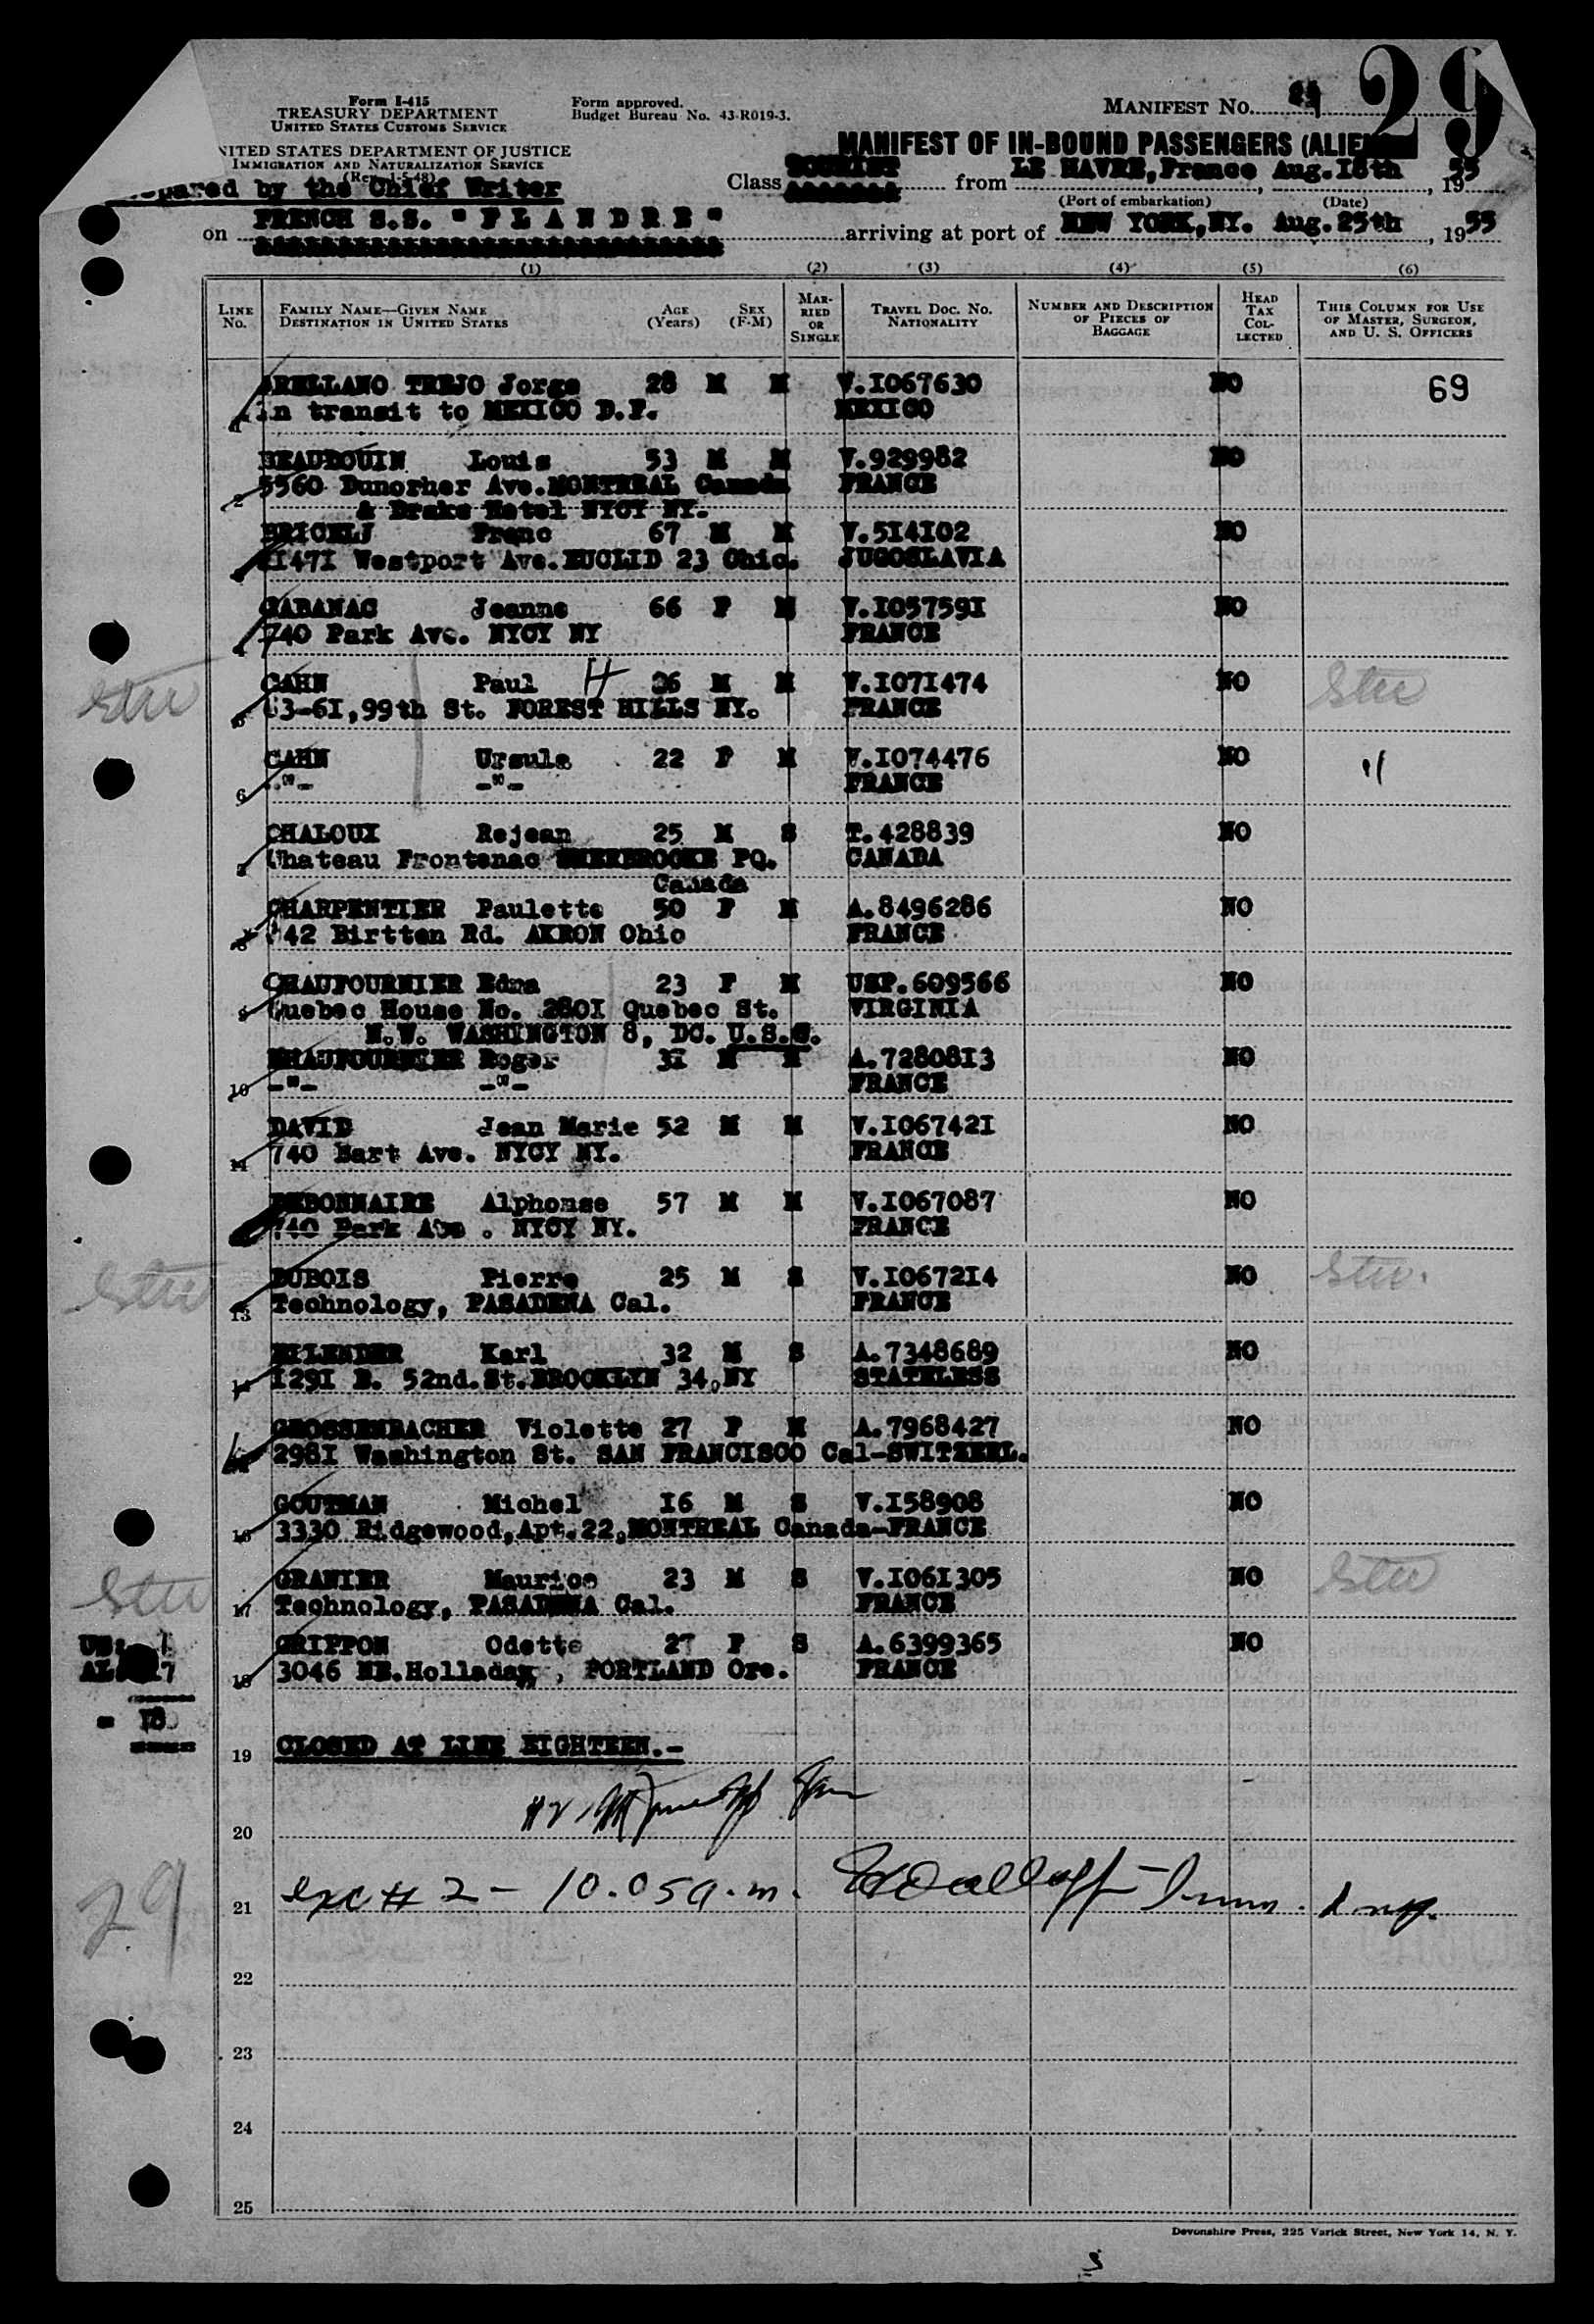 29
Form I-415
TREASURY DEPARTMENT
UNITED STATES CUSTOMS SERVICE
Form approved.
Budget Bureau No. 43-R019-3.
MANIFEST NO.
MANIFEST OF IN-BOUND PASSENGERS (ALIE
NITED STATES DEPARTMENT OF JUSTICE
IMMIGRATION AND NATURALIZATION SERVICE
(Rev. 1-5-48)
epared by the Chief Writer
Class TOURIST from LE HAVRE, France, Aug.18th, 1955
(Port of embarkation) (Date)
on FRENCH S.S. " F L A N D R E " arriving at port of NEW YORK, NY. Aug. 25th, 1955
(1) (2) (3) (4) (5) (6)
LINE No. FAMILY NAME—GIVEN NAME DESTINATION IN UNITED STATES AGE (Years) SEX (F-M) MARRIED OR SINGLE TRAVEL DOC. NO. NATIONALITY NUMBER AND DESCRIPTION OF PIECES OF BAGGAGE HEAD TAX COLLECTED THIS COLUMN FOR USE OF MASTER, SURGEON, AND U. S. OFFICERS
ARELLANO TREJO Jorge 28 M M V.I067630 NO 69
1 In transit to MEXICO D.F. MEXICO
BEAUDOUIN Louis 53 M M V.929982 NO
2 5560 Dunorher Ave.MONTREAL Canada FRANCE
& Drake Hotel NYCY NY.
BRICELJ Franc 67 M M V.5I4I02 NO
2I47I Westport Ave.EUCLID 23 Ohio. JUGOSLAVIA
CABANAC Jeanne 66 F M V.I05759I NO
740 Park Ave. NYCY NY FRANCE
Stu CAHN Paul H 26 M M V.I07I474 NO Stu
5 63-6I,99th St. FOREST HILLS NY. FRANCE
CAHN Ursula 22 F M V.I074476 NO "
6 -"- -"- FRANCE
CHALOUX Rejean 25 M S T.428839 NO
7 Chateau Frontenac SHERBROOKE PQ. CANADA
Canada
CHARPENTIER Paulette 50 F M A.8496286 NO
8 42 Birtten Rd. AKRON Ohio FRANCE
CHAUFOURNIER Edna 23 F M USP.609566 NO
9 Quebec House No. 280I Quebec St. VIRGINIA
N.W. WASHINGTON 8, DC. U.S.C.
CHAUFOURNIER Roger 3I M M A.72808I3 NO
10 -"- -"- FRANCE
DAVID Jean Marie 52 M M V.I06742I NO
11 740 Hart Ave. NYCY NY. FRANCE
DEBONNAIRE Alphonse 57 M M V.I067087 NO
740 Park Ave . NYCY NY. FRANCE
Stu DUBOIS Pierre 25 M S V.I0672I4 NO Stu.
13 Technology, PASADENA Cal. FRANCE
EILENDER Karl 32 M S A.7348689 NO
14 I29I E. 52nd.St.BROOKLYN 34,NY STATELESS
GROSSENBACHER Violette 27 F M A.7968427 NO
298I Washington St. SAN FRANCISCO Cal-SWITZERL.
GOUTMAN Michel I6 M S V.I58908 NO
16 3330 Ridgewood,Apt.22,MONTREAL Canada-FRANCE
Stu GRANIER Maurice 23 M S V.I06I305 NO Stu
17 Technology, PASADENA Cal. FRANCE
US: 1 GRIFFON Odette 27 F S A.6399365 NO
AL: 17 18 3046 NE.Holladay , PORTLAND Ore. FRANCE
= 18
19 CLOSED AT LINE EIGHTEEN.-
20
21 exc # 2 - 10.05 a.m.
29
22
23
24
25
Devonshire Press, 225 Varick Street, New York 14, N. Y.